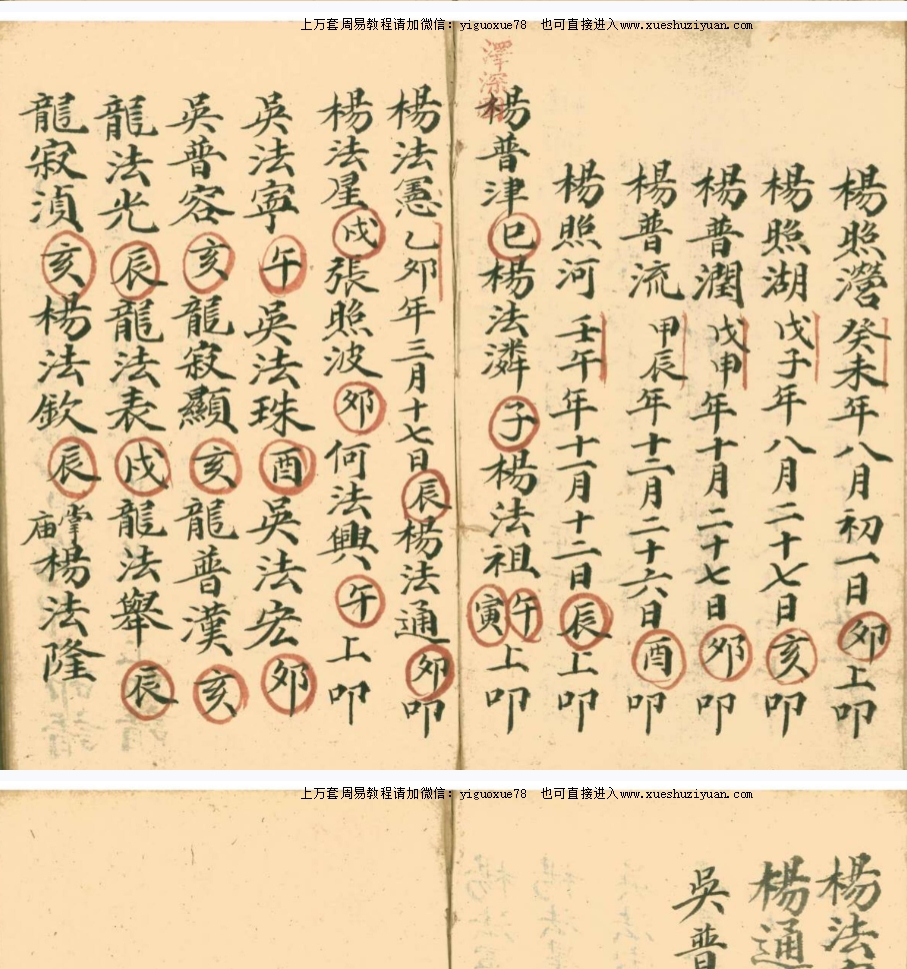 上万套周易教程请加微信：yiguoxue78　也可直接进入www.xueshuziyuan.com
楊照瀯癸未年八月初一日卯上叩
楊照湖戊子年八月二十七日亥叩
楊普潤戊申年十月二十七日卯叩
楊普流甲辰年十二月二十六日酉叩
楊照河壬午年十一月十二日辰上叩
澤深
楊普津巳楊法潾子楊法祖午寅上叩
楊法憲乙卯年三月十七日辰楊法通卯叩
楊法星戌張照波卯何法興午上叩
吳法寧午吳法珠酉吳法宏卯
吳普容亥龍寂顯亥龍普漢亥
龍法光辰龍法表戌龍法舉辰
龍寂湞亥楊法欽辰掌庙楊法隆
上万套周易教程请加微信：yiguoxue78　也可直接进入www.xueshuziyuan.com
楊法
楊通
吳普